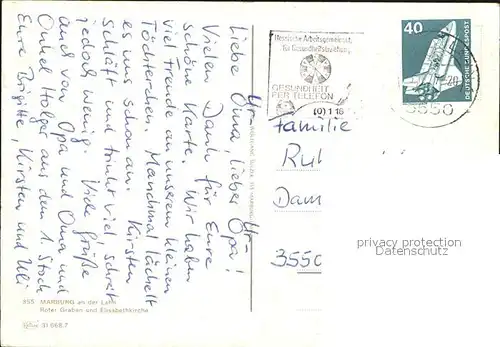 Liebe Ur-Oma, lieber Ur-Opa!
Vielen Dank für Eure
schöne Karte. Wir haben
viel Freude an unserem kleinen
Töchterchen. Manchmal lächelt
es uns schon an. Kirsten
schläft und trinkt viel, schreit
jedoch wenig. Viele Grüße
auch von Opa und Oma und
Onkel Holger aus dem 1. Stock
Eure Brigitte, Kirsten und Uli
355 MARBURG an der Lahn
Roter Graben und Elisabethkirche
31 668.7
Hessische Arbeitsgemeinschaft
für Gesundheitserziehung
GESUNDHEIT
PER TELEFON
(0) 1 16
40
DEUTSCHE BUNDESPOST
3550
Familie
Ru
Dam
3550
privacy protection
watermark